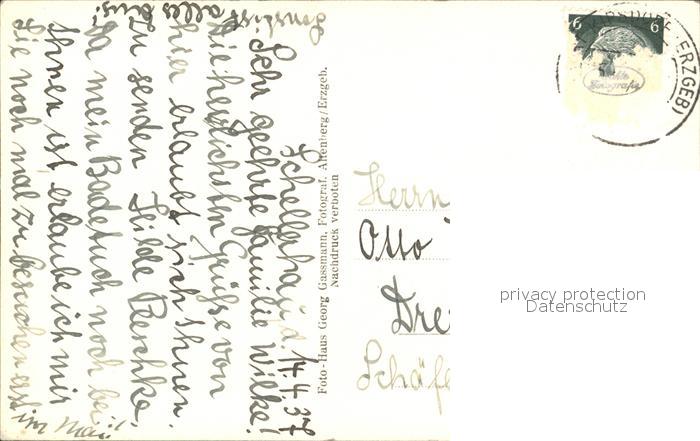 Schellerhau, d. 14.4.37
Sehr geehrte Familie Wilke!
Die herzlichsten Grüße von
hier erlaubt sich Ihnen
zu senden Hilde Peschke.
Da mein Badetuch noch bei
Ihnen ist, erlaube ich mir
Sie noch mal zu besuchen erst im Mai!
Sonst ist alles aus!
Foto-Haus Georg Gassmann, Fotograf, Altenberg/Erzgeb.
Nachdruck verboten
6 6
ERZGEB)
Herrn
Otto
Dre
Schäfe
privacy protection
Datenschutz